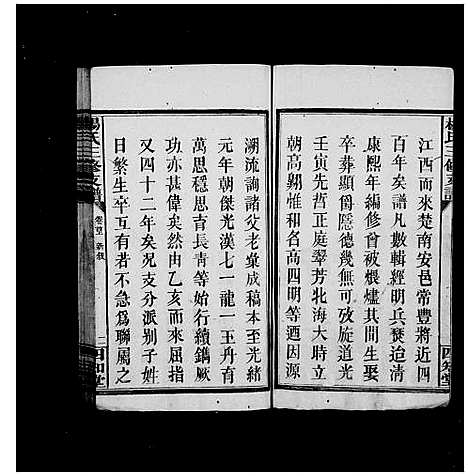 江西而來楚南安邑常豐將近四
百年矣譜凡數輯經明兵燹迨清
康熙年編修曾被煨燼其間生娶
卒葬顯爵隱德幾無可攷旋道光
壬寅先哲正庭翠芳北海大時立
朝高翺惟和名高四明等遒因源
溯流詢諸父老彙成稿本至光緒
元年朝傑光漢七一龍一玉丹育
萬思穩思青長青等始行續鐫厥
功亦甚偉矣然由乙亥而來屈指
又四十二年矣况支分派别子姓
日繁生卒互有若不急爲聯屬之
楊氏三修支譜
卷首 新叙
二
四知堂